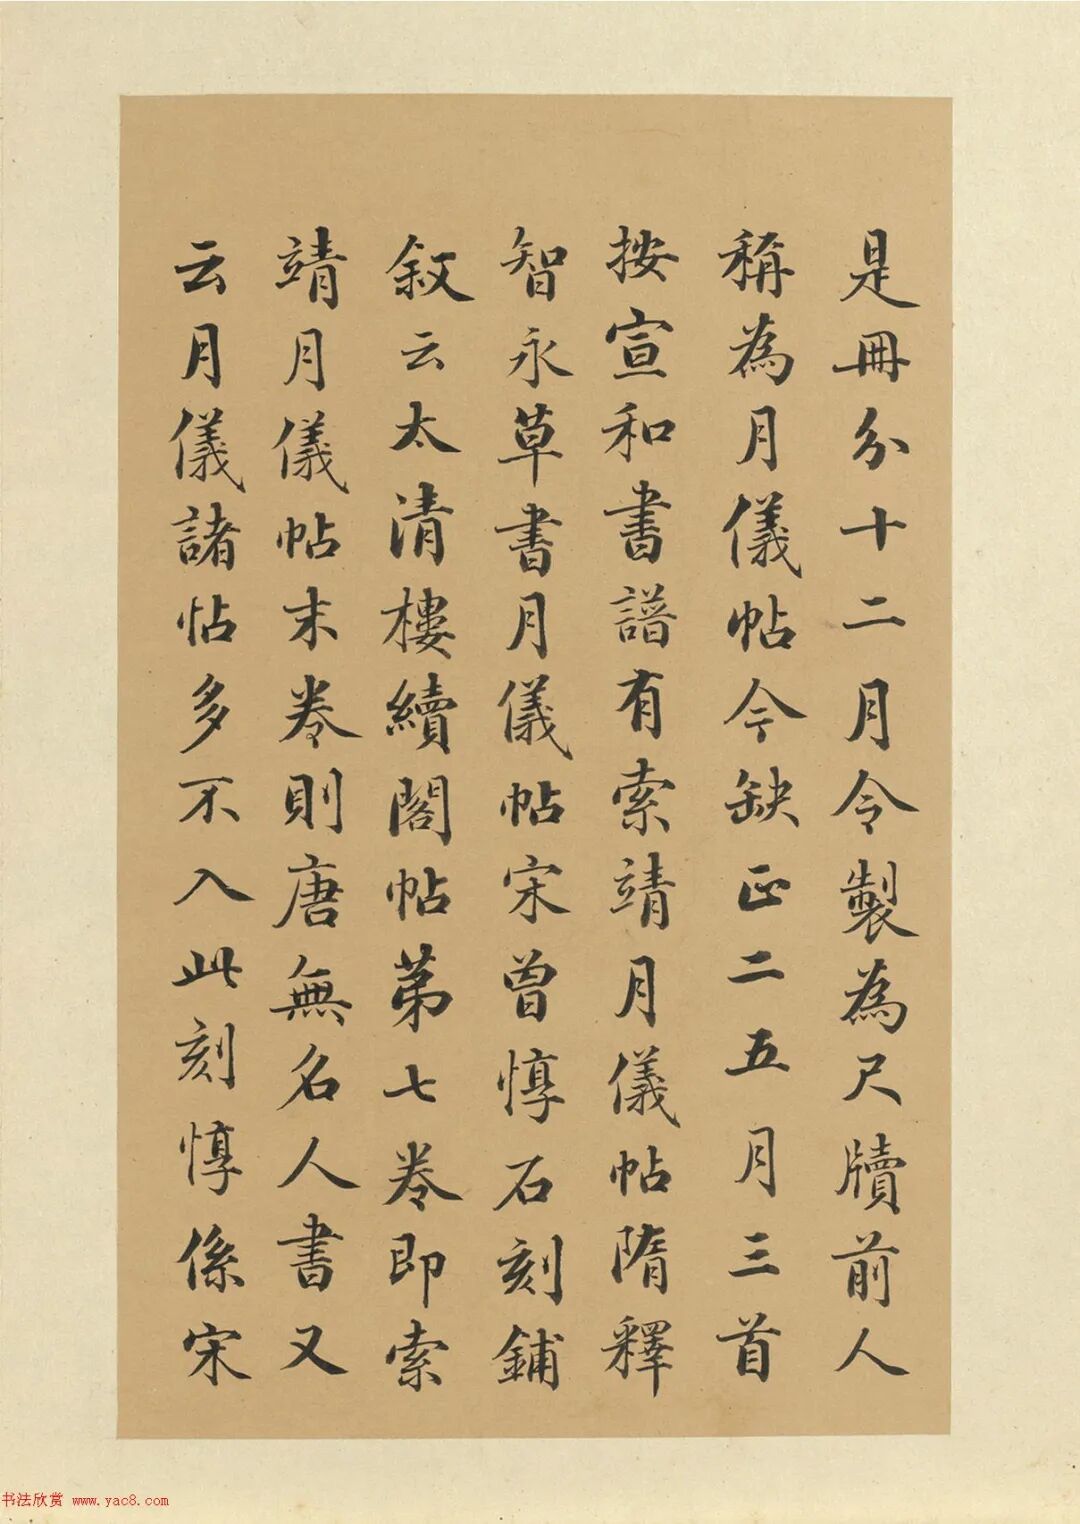 是冊分十二月令製為尺牘前人
稱為月儀帖今缺正二五月三首
按宣和書譜有索靖月儀帖隋釋
智永草書月儀帖宋曾惇石刻鋪
敘云太清樓續閣帖第七卷即索
靖月儀帖末卷則唐無名人書又
云月儀諸帖多不入此刻惇係宋
书法欣赏 www.yac8.com